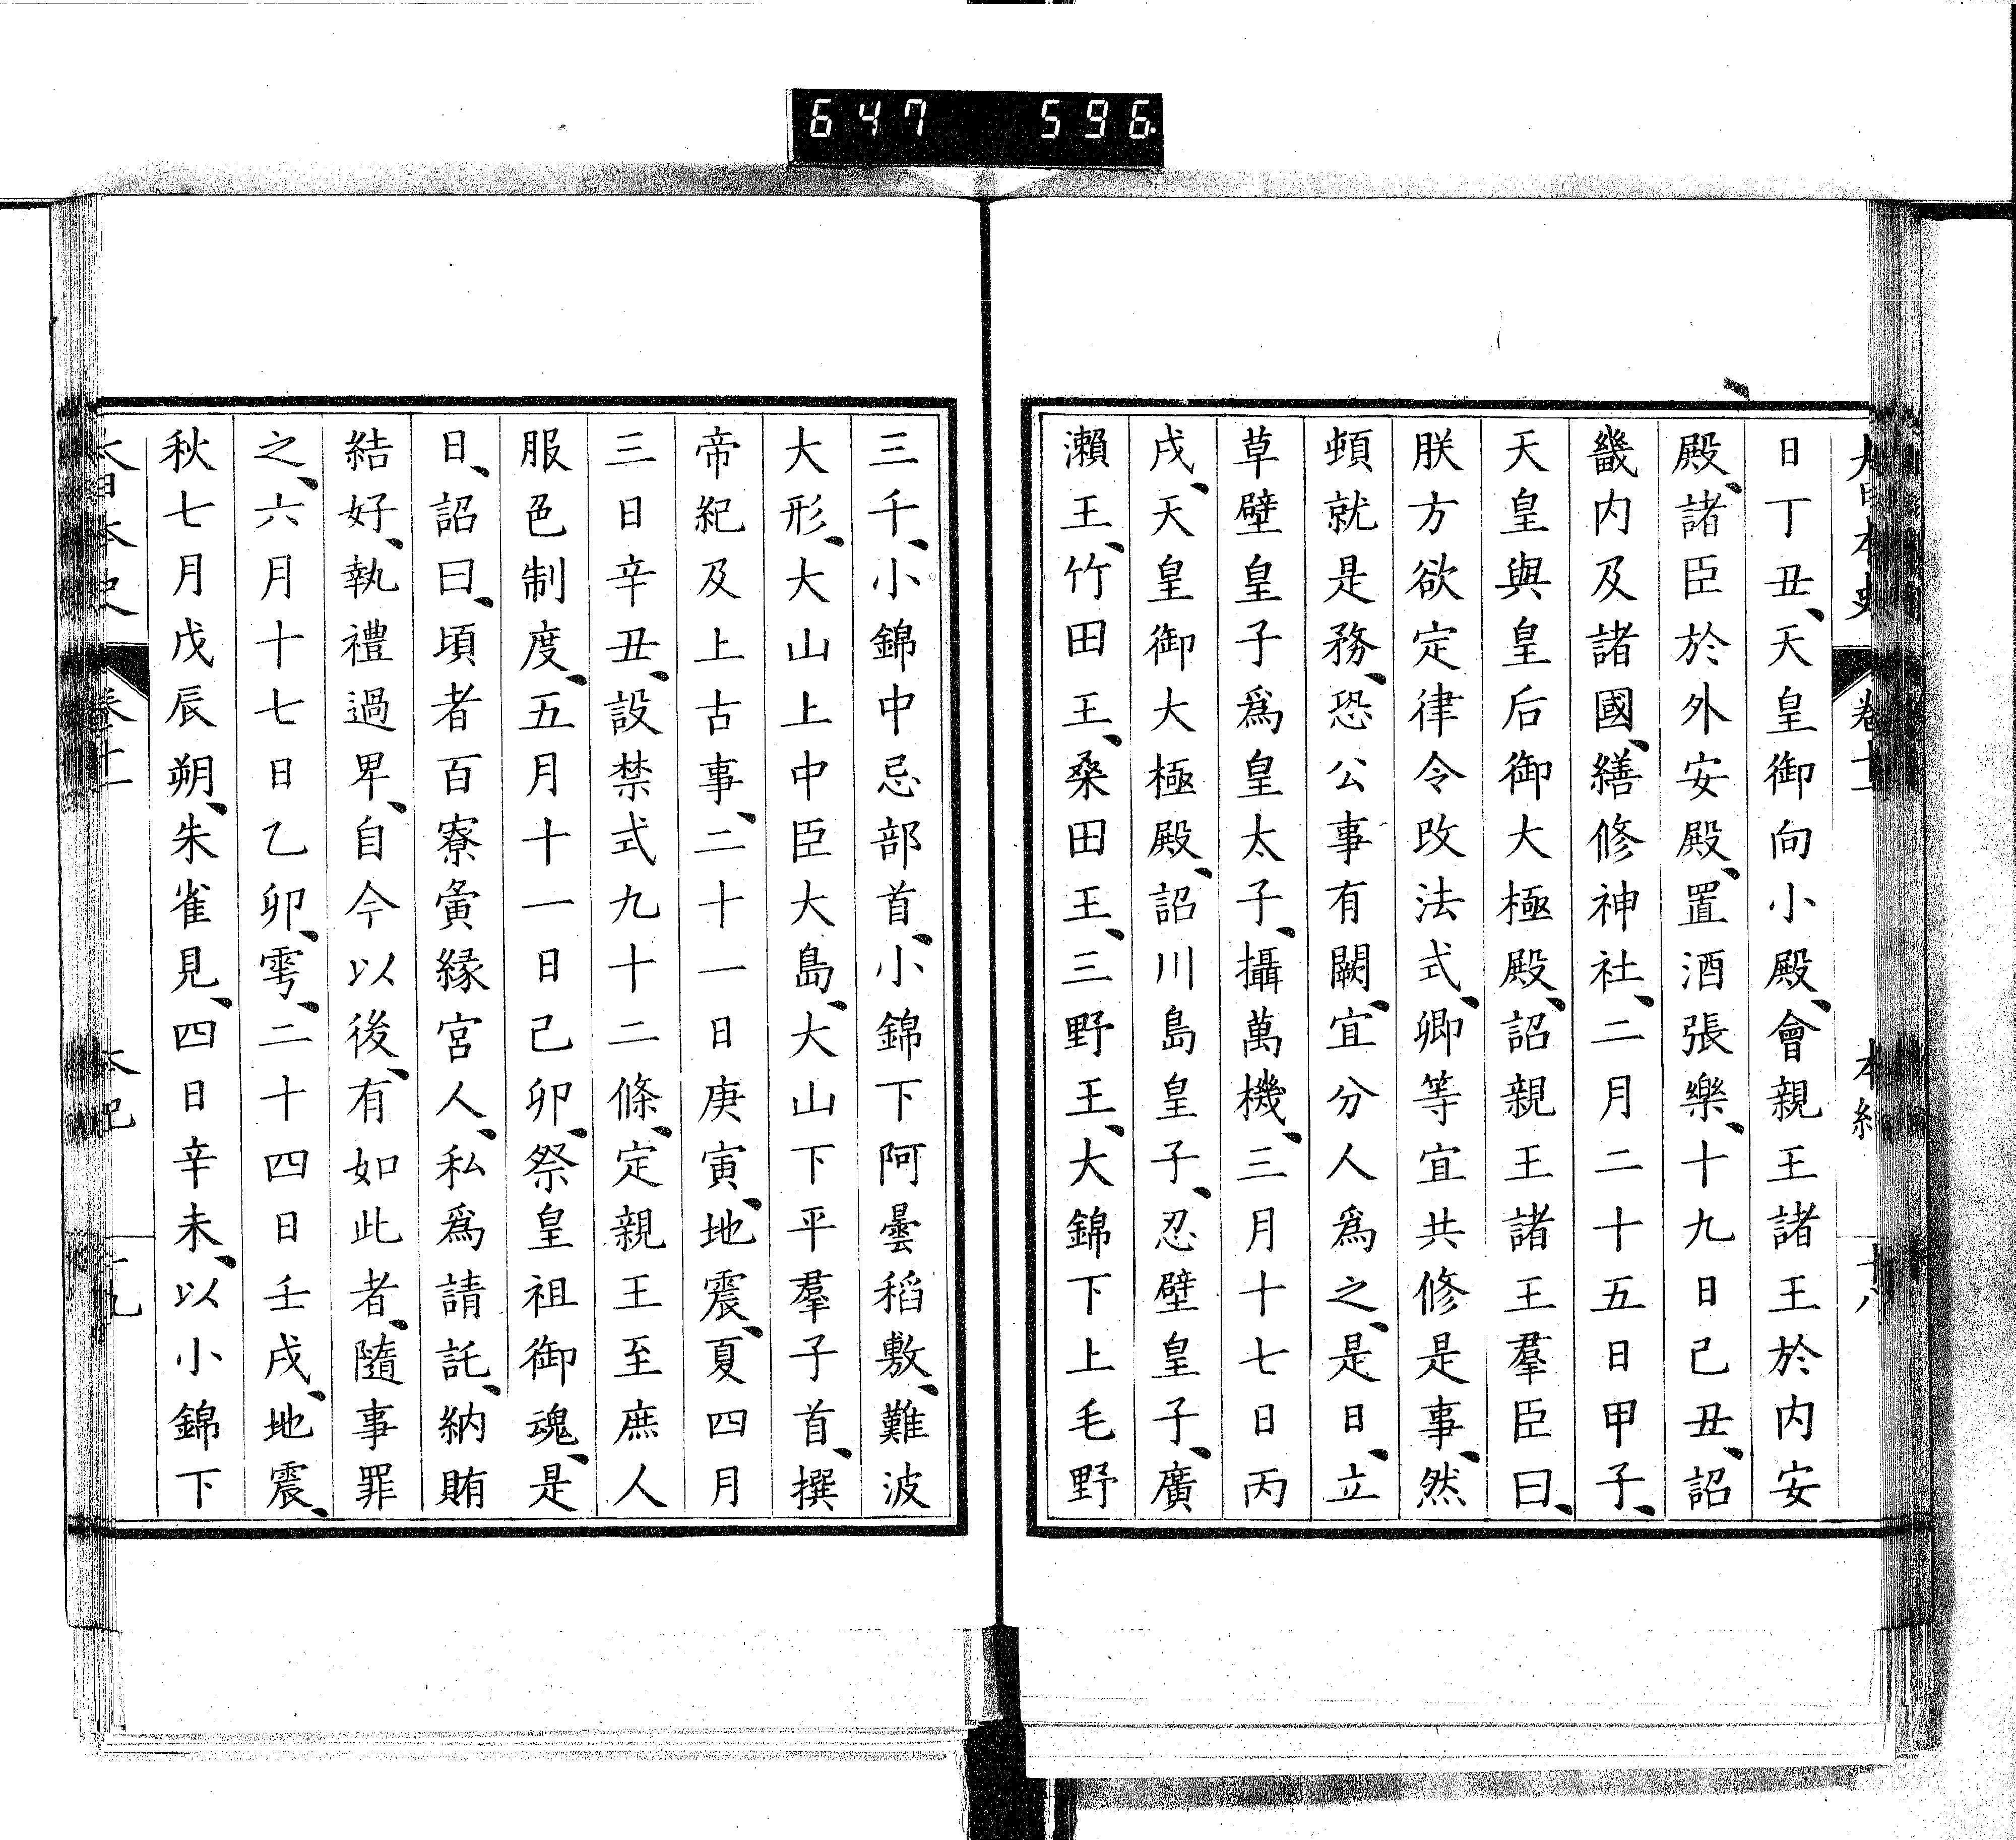 647 596
大日本史 卷十一 本紀 十八
日丁丑、天皇御向小殿、會親王諸王於内安
殿、諸臣於外安殿、置酒張樂、十九日己丑、詔
畿内及諸國、繕修神社、二月二十五日甲子、
天皇與皇后御大極殿、詔親王諸王羣臣曰、
朕方欲定律令改法式、卿等宜共修是事、然
頓就是務、恐公事有闕、宜分人爲之、是日、立
草壁皇子爲皇太子、攝萬機、三月十七日丙
戌、天皇御大極殿、詔川島皇子、忍壁皇子、廣
瀨王、竹田王、桑田王、三野王、大錦下上毛野
三千、小錦中忌部首、小錦下阿曇稻敷、難波
大形、大山上中臣大島、大山下平羣子首、撰
帝紀及上古事、二十一日庚寅、地震、夏四月
三日辛丑、設禁式九十二條、定親王至庶人
服色制度、五月十一日己卯、祭皇祖御魂、是
日、詔曰、頃者百寮夤緣宮人、私爲請託、納賄
結好、執禮過卑、自今以後、有如此者、隨事罪
之、六月十七日乙卯、雩、二十四日壬戌、地震、
秋七月戊辰朔、朱雀見、四日辛未、以小錦下
大日本史 卷十一 本紀 十九